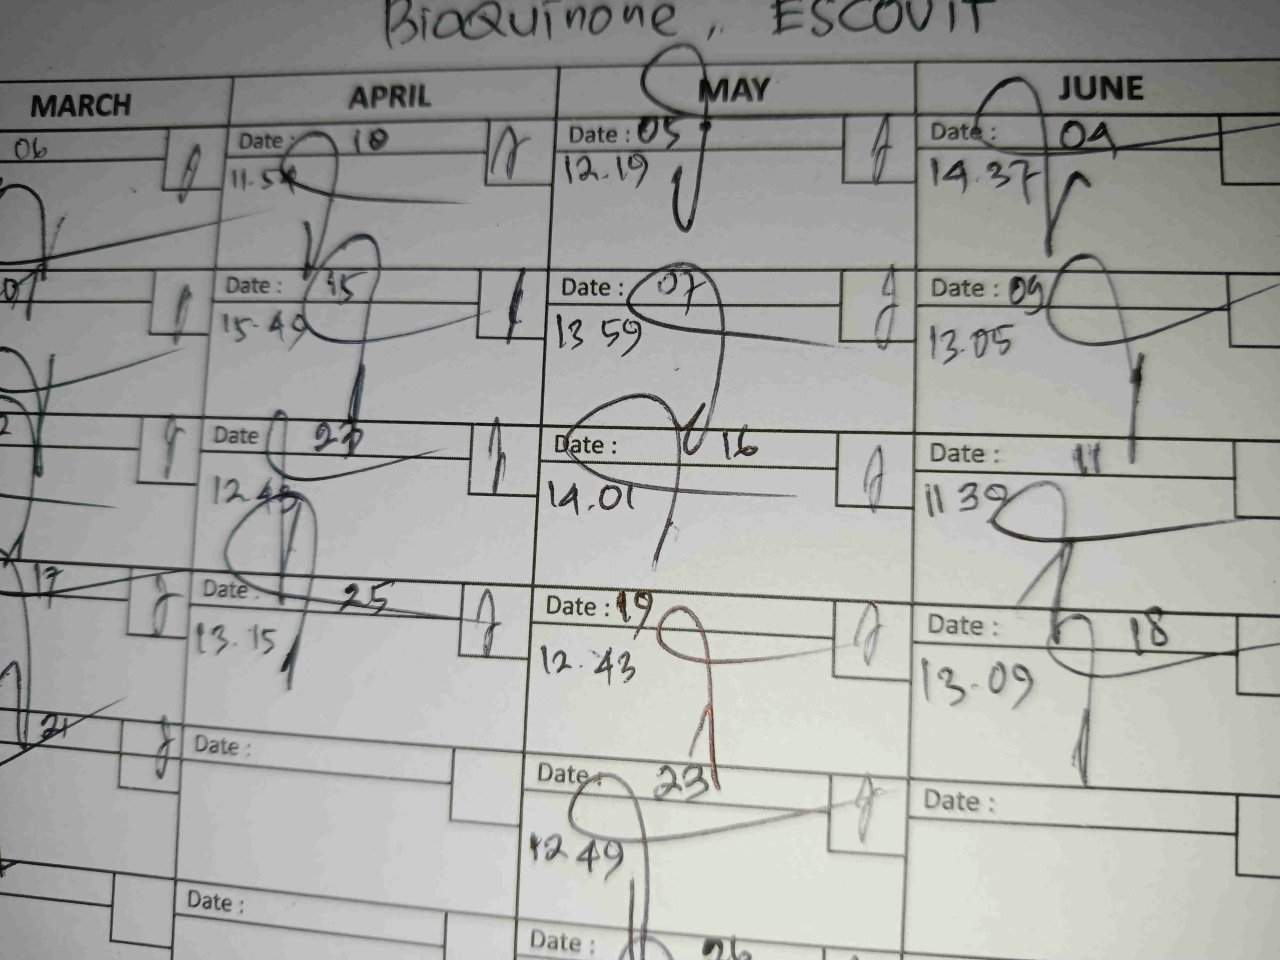 BioQuinone, ESCOVIT
MARCH APRIL MAY JUNE
06 Date: 10 Date: 05 Date: 04
11.54 12.19 14.37
07 Date: 15 Date: 07 Date: 09
15.49 13 59 13.05
Date Date: 16 Date: 11
12.43 14.01 11 39
17 Date: 25 Date: 19 Date: 18
13.15 12.43 13.09
21 Date: Date: 23 Date:
12 49
Date: Date: 26